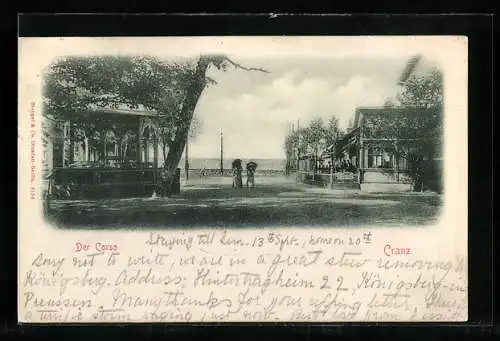 Stengel & Co., Dresden-Berlin. 8136
Der Corso
Cranz
Staying till 13th Sept, home on 20th
Sorry not to write, we are in a great stew removing to
Königsberg. Address: Hinter tragheim 27 Königsberg-in
Preussen. Many thanks for your letter.
a terrific storm raging just now.